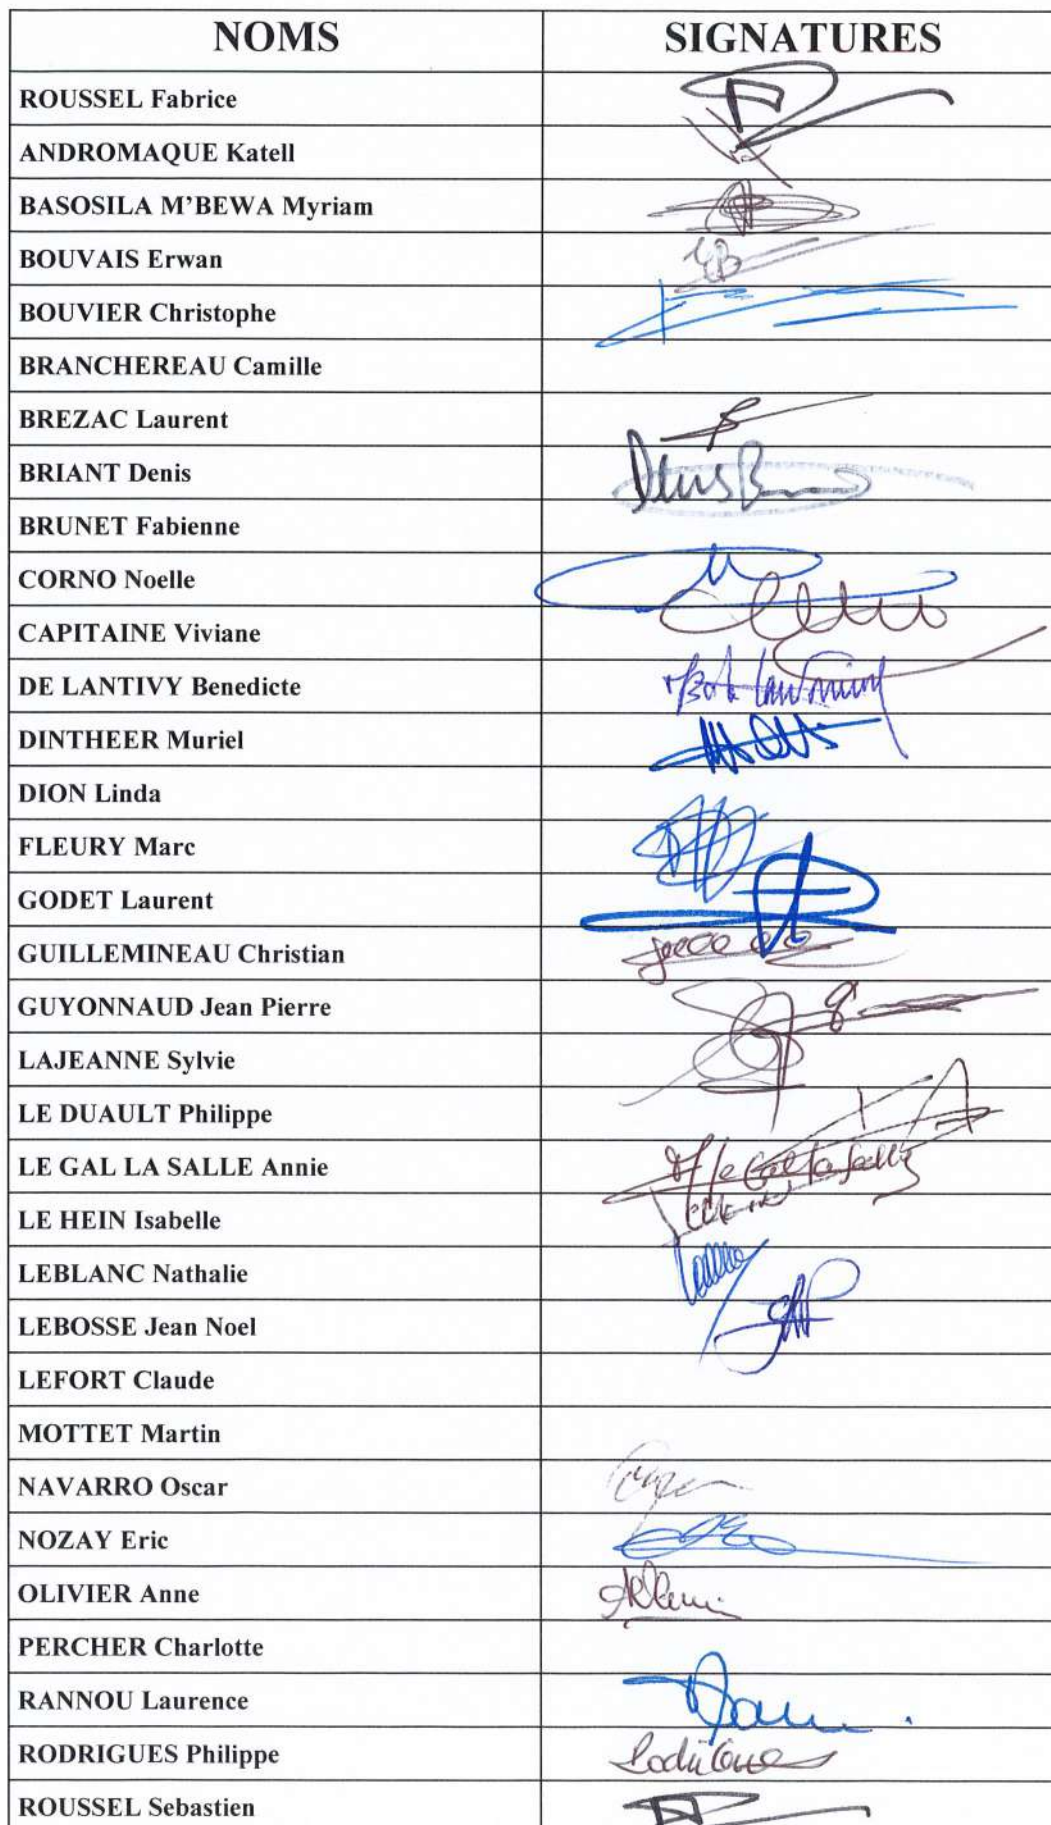 NOMS SIGNATURES
ROUSSEL Fabrice
ANDROMAQUE Katell
BASOSILA M’BEWA Myriam
BOUVAIS Erwan
BOUVIER Christophe
BRANCHEREAU Camille
BREZAC Laurent
BRIANT Denis
BRUNET Fabienne
CORNO Noelle
CAPITAINE Viviane
DE LANTIVY Benedicte
DINTHEER Muriel
DION Linda
FLEURY Marc
GODET Laurent
GUILLEMINEAU Christian
GUYONNAUD Jean Pierre
LAJEANNE Sylvie
LE DUAULT Philippe
LE GAL LA SALLE Annie
LE HEIN Isabelle
LEBLANC Nathalie
LEBOSSE Jean Noel
LEFORT Claude
MOTTET Martin
NAVARRO Oscar
NOZAY Eric
OLIVIER Anne
PERCHER Charlotte
RANNOU Laurence
RODRIGUES Philippe
ROUSSEL Sebastien